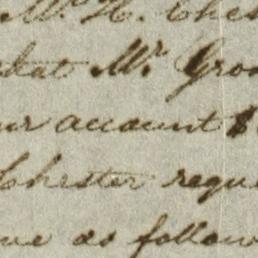 Mr. H. Ches
that Mr. Groo
ur account $
Chester requ
me as follow